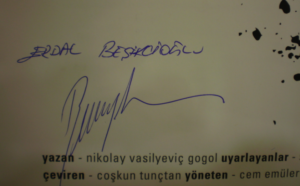 ERDAL BEŞİKÇİOĞLU
yazan - nikolay vasilyeviç gogol uyarlayanlar -
çeviren - coşkun tunçtan yöneten - cem emüler